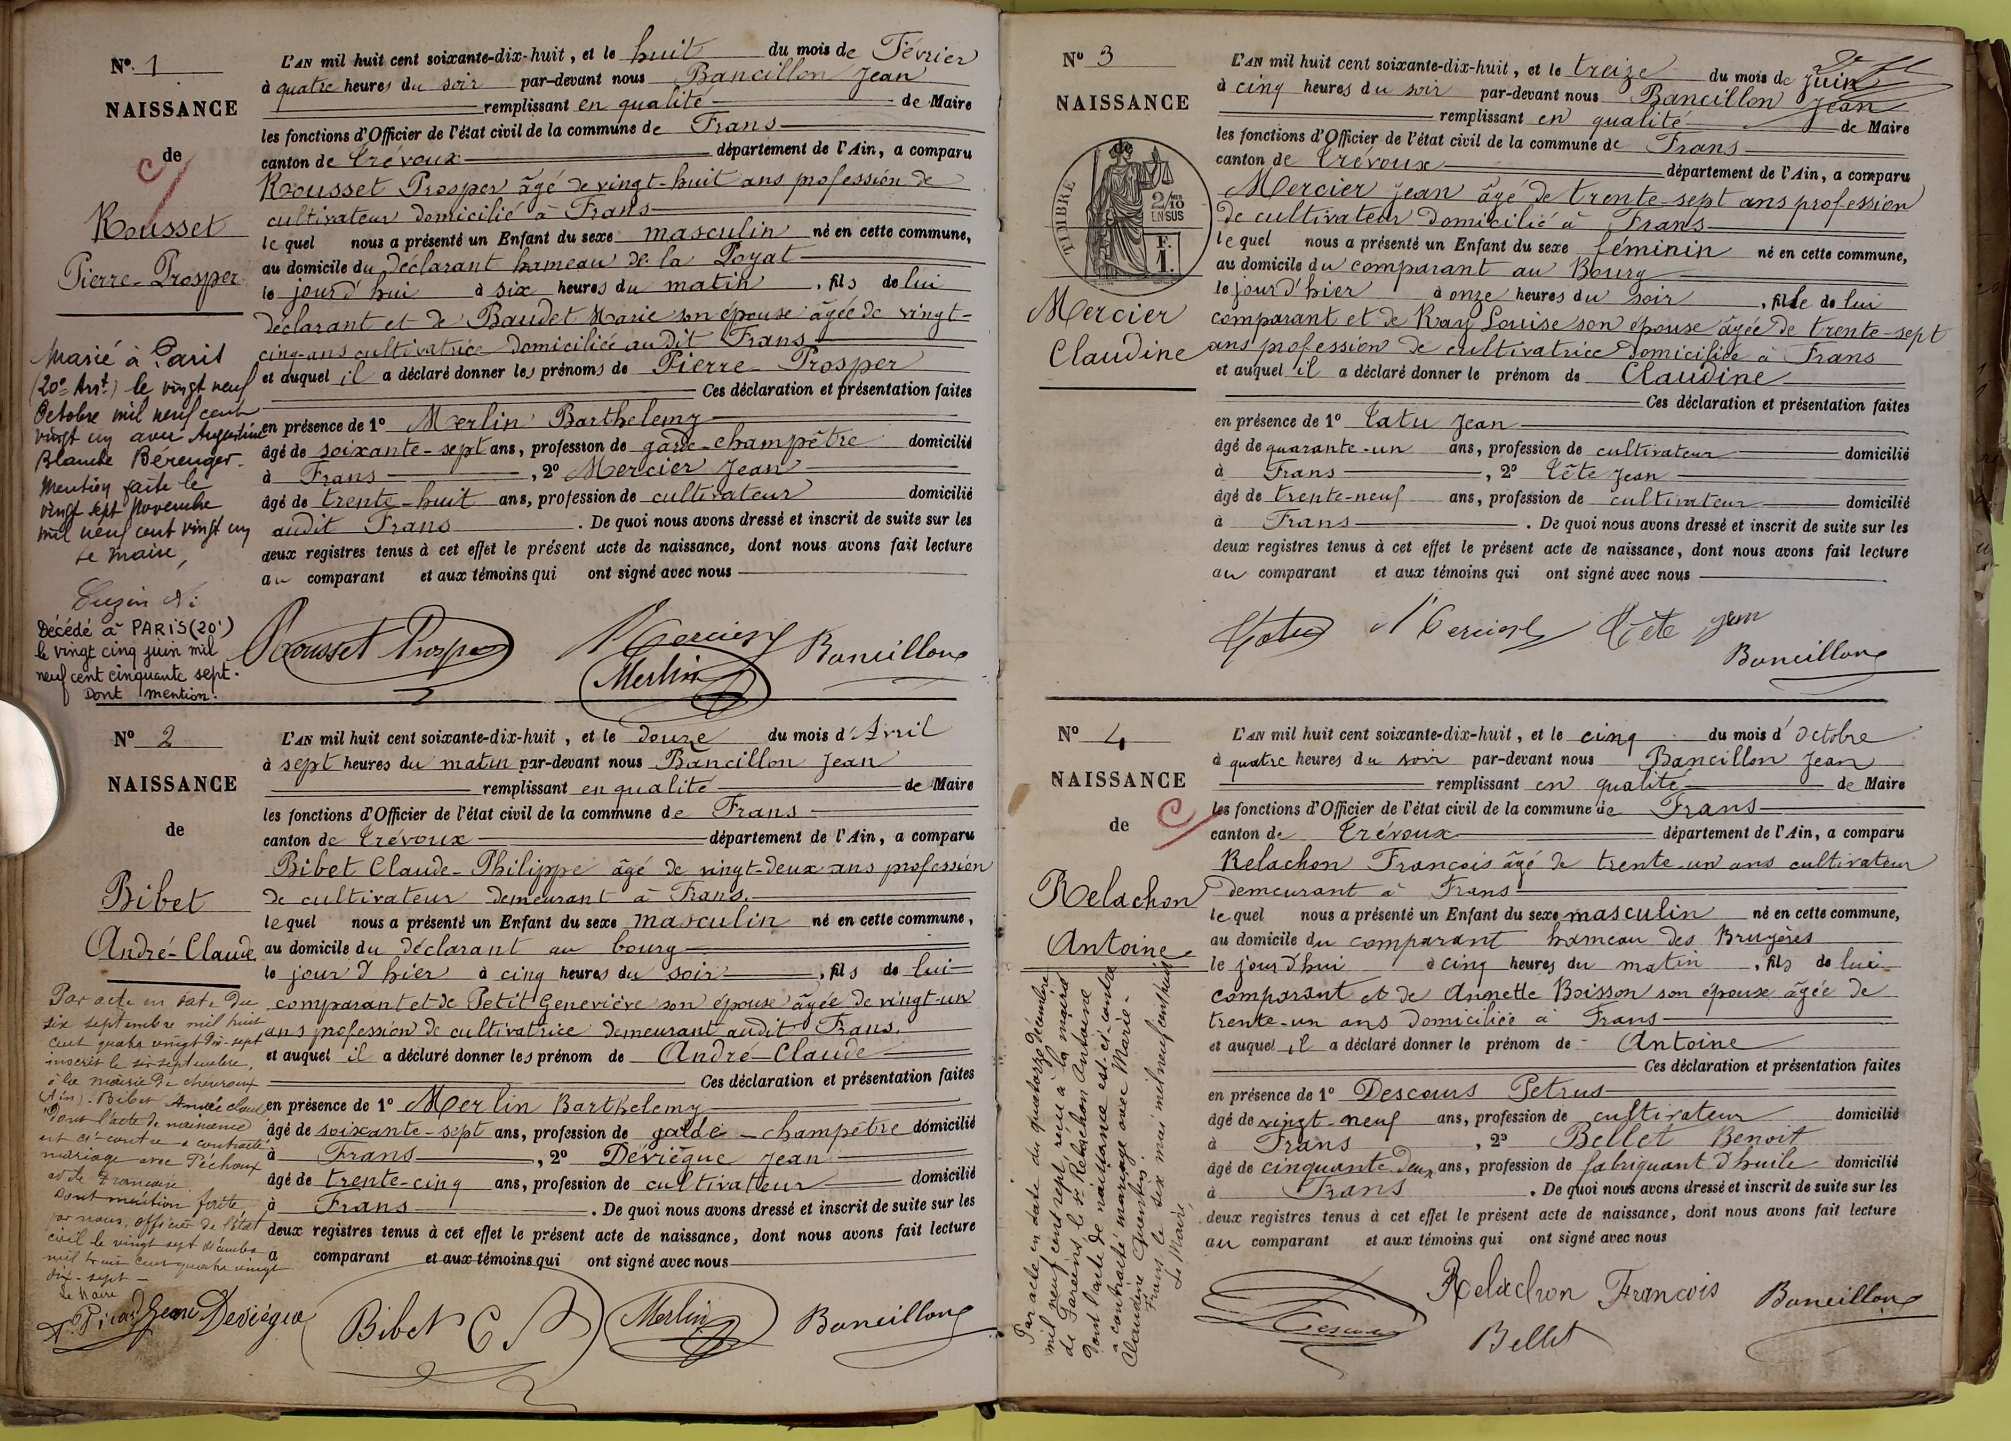 N° 1
NAISSANCE
de
Rousset
Pierre-Prosper
Marié à Paris
(20e Arrt.) le vingt neuf
Octobre mil neuf cent
vingt un avec Augustine
Blanche Bérenger.
Mention faite le
vingt sept Novembre
mil neuf cent vingt un
Le Maire,
Décédé à PARIS (20e)
le vingt cinq juin mil
neuf cent cinquante sept.
Dont mention.
L'AN mil huit cent soixante-dix-huit, et le huit du mois de Février
à quatre heures du soir par-devant nous Bancillon Jean
remplissant en qualité de Maire
les fonctions d'Officier de l'état civil de la commune de Frans
canton de Trévoux département de l'Ain, a comparu
Rousset Prosper âgé de vingt-huit ans profession de
cultivateur domicilié à Frans
lequel nous a présenté un Enfant du sexe masculin né en cette commune,
au domicile du déclarant hameau de la Poyat
le jourd'hui à six heures du matin, fils de lui
déclarant et de Baudet Marie son épouse âgée de vingt-
cinq-ans cultivatrice domiciliée audit Frans
et auquel il a déclaré donner les prénoms de Pierre-Prosper
Ces déclaration et présentation faites
en présence de 1° Merlin Barthelemy
âgé de soixante-sept ans, profession de garde-champêtre domicilié
à Frans, 2° Mercier Jean
âgé de trente-huit ans, profession de cultivateur domicilié
audit Frans. De quoi nous avons dressé et inscrit de suite sur les
deux registres tenus à cet effet le présent acte de naissance, dont nous avons fait lecture
au comparant et aux témoins qui ont signé avec nous
Rousset Prosper Mercier Bancillon
Merlin
N° 2
NAISSANCE
de
Bibet
André-Claude
Par acte en date du
six septembre mil huit
cent quatre vingt dix-sept
inscrit le six septembre,
à la mairie de Chevroux
(Ain). Bibet André Claude
dont l'acte de naissance
est ci-contre a contracté
mariage avec Péchoux
Française
Dont mention faite
par nous, officier de l'état
civil le vingt sept décembre
mil huit cent quatre vingt
dix-sept -
Le Maire
L'AN mil huit cent soixante-dix-huit, et le douze du mois d'Avril
à sept heures du matin par-devant nous Bancillon Jean
remplissant en qualité de Maire
les fonctions d'Officier de l'état civil de la commune de Frans
canton de Trévoux département de l'Ain, a comparu
Bibet Claude-Philippe âgé de vingt-deux ans profession
de cultivateur demeurant à Frans.
lequel nous a présenté un Enfant du sexe masculin né en cette commune,
au domicile du déclarant au bourg
le jour d'hier à cinq heures du soir, fils de lui
comparant et de Petit Geneviève son épouse âgée de vingt-un
ans profession de cultivatrice demeurant audit Frans.
et auquel il a déclaré donner les prénom de André-Claude
Ces déclaration et présentation faites
en présence de 1° Merlin Barthelemy
âgé de soixante-sept ans, profession de garde-champêtre domicilié
à Frans, 2° Deviègue Jean
âgé de trente-cinq ans, profession de cultivateur domicilié
à Frans. De quoi nous avons dressé et inscrit de suite sur les
deux registres tenus à cet effet le présent acte de naissance, dont nous avons fait lecture
a comparant et aux témoins qui ont signé avec nous
Jean Deviègue Bibet C Merlin Bancillon
N° 3
NAISSANCE
TIMBRE
2/10
EN SUS
F.
1.
Mercier
Claudine
L'AN mil huit cent soixante-dix-huit, et le treize du mois de Juin
à cinq heures du soir par-devant nous Bancillon Jean
remplissant en qualité de Maire
les fonctions d'Officier de l'état civil de la commune de Frans
canton de Trévoux département de l'Ain, a comparu
Mercier Jean âgé de trente-sept ans profession
de cultivateur domicilié à Frans
lequel nous a présenté un Enfant du sexe féminin né en cette commune,
au domicile du comparant au Bourg
le jourd'hier à onze heures du soir, fille de lui
comparant et de Ray Louise son épouse âgée de trente-sept
ans profession de cultivatrice domiciliée à Frans
et auquel il a déclaré donner le prénom de Claudine
Ces déclaration et présentation faites
en présence de 1° Tatu Jean
âgé de quarante-un ans, profession de cultivateur domicilié
à Frans, 2° Tête Jean
âgé de trente-neuf ans, profession de cultivateur domicilié
à Frans. De quoi nous avons dressé et inscrit de suite sur les
deux registres tenus à cet effet le présent acte de naissance, dont nous avons fait lecture
au comparant et aux témoins qui ont signé avec nous
Tatu Mercier Tête Jean
Bancillon
N° 4
NAISSANCE
de
Relachon
Antoine
Par acte en date du quatorze décembre
mil neuf cent sept, reçu à la mairie
de Parcieux le Sr Relachon Antoine
dont l'acte de naissance est ci-contre
à contracté mariage avec Marie-
Claudine
Frans le six mai mil neuf cent huit
Le Maire
L'AN mil huit cent soixante-dix-huit, et le cinq du mois d'Octobre
à quatre heures du soir par-devant nous Bancillon Jean
remplissant en qualité de Maire
les fonctions d'Officier de l'état civil de la commune de Frans
canton de Trévoux département de l'Ain, a comparu
Relachon François âgé de trente-un ans cultivateur
demeurant à Frans
lequel nous a présenté un Enfant du sexe masculin né en cette commune,
au domicile du comparant hameau des Bruyères
le jourd'hui à cinq heures du matin, fils de lui
comparant et de Annette Boisson son épouse âgée de
trente-un ans domiciliée à Frans
et auquel il a déclaré donner le prénom de Antoine
Ces déclaration et présentation faites
en présence de 1° Descours Petrus
âgé de vingt neuf ans, profession de cultivateur domicilié
à Frans, 2° Bellet Benoit
âgé de cinquante deux ans, profession de fabriquant d'huile domicilié
à Frans. De quoi nous avons dressé et inscrit de suite sur les
deux registres tenus à cet effet le présent acte de naissance, dont nous avons fait lecture
au comparant et aux témoins qui ont signé avec nous
Descours Relachon François Bancillon
Bellet